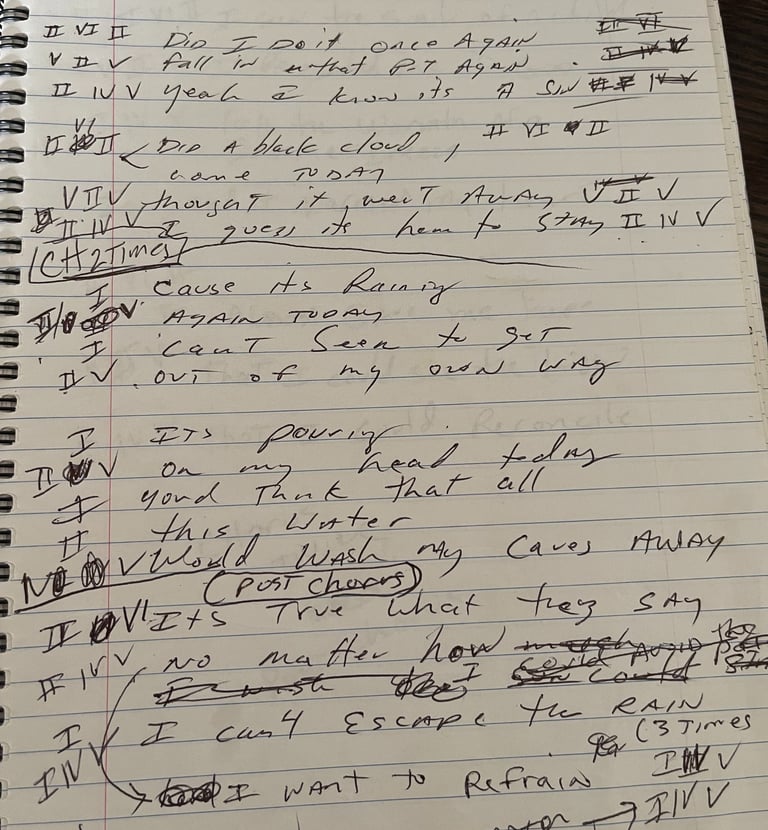 II VI II Did I Do it once Again II VI
V II V fall in that Pit Again II IV V
II IV V yeah I know its A Sin IV V
VI
II II Did A black cloud, II VI II
come TODAY
V II V thought it went Away V II V
II IV V I guess its here to stay II IV V
(CH 2 Times)
I Cause its Raining
II V AGAIN TODAY
I Can't Seem to get
II V out of my own way
I ITS pouring
II V on my head today
I youd Think that all
II this Water
V Would Wash my Cares AWAY
(POST Chorus)
II VI Its True What they SAY
II IV V No matter how I
I I can't Escape the RAIN
(3 Times
I IV V I WANT to Refrain I V
I IV V